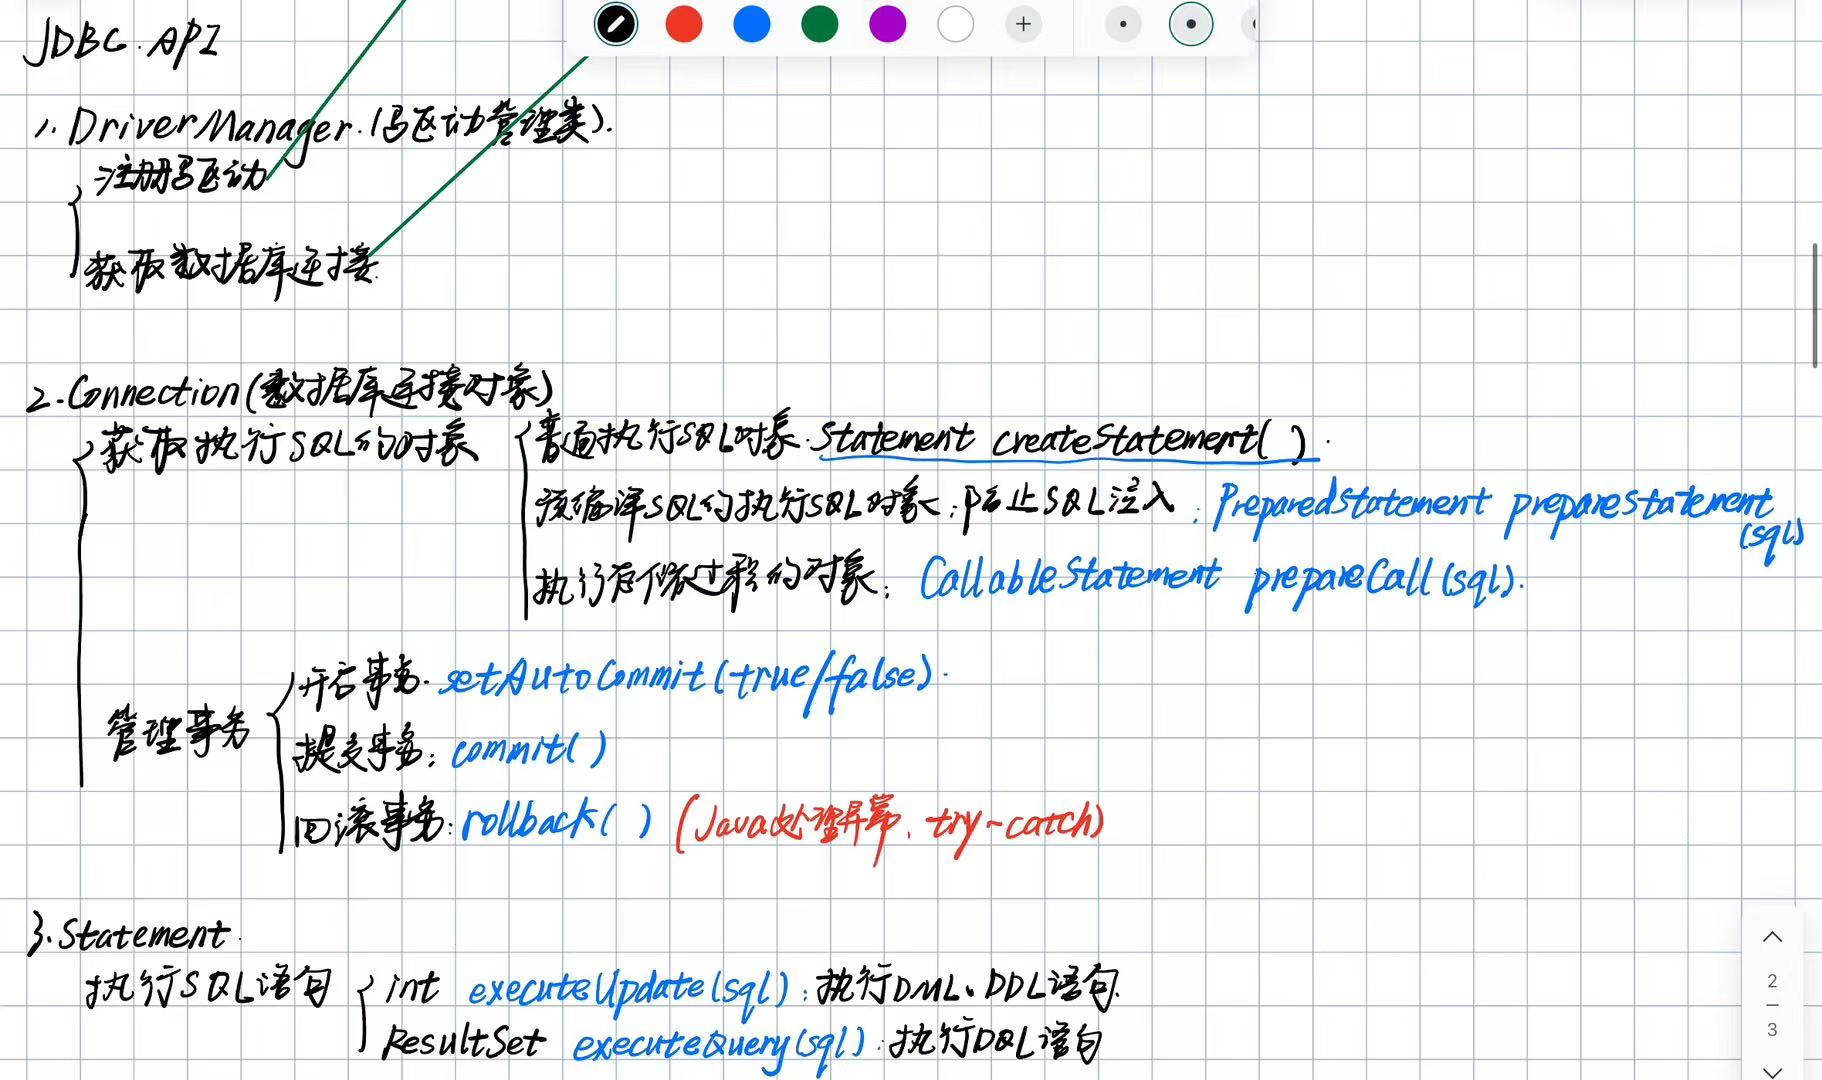 JDBC API
1. DriverManager (驱动管理类).
注册驱动
获取数据库连接
2. Connection (数据库连接对象)
获取执行SQL的对象
普通执行SQL对象. Statement createStatement( ).
预编译SQL的执行SQL对象:防止SQL注入: PreparedStatement preparestatement (sql)
执行存储过程的对象: CallableStatement prepareCall(sql).
管理事务
开启事务. setAutoCommit(true/false).
提交事务: commit( )
回滚事务: rollback( ) (Java处理异常, try-catch)
3. Statement.
执行SQL语句
int executeUpdate(sql): 执行DML、DDL语句.
ResultSet executeQuery(sql): 执行DQL语句
2
3